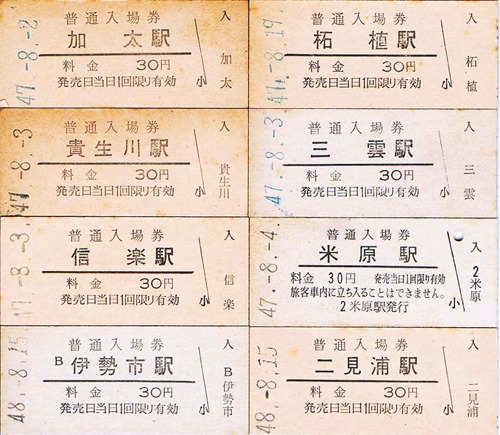 普通入場券
加太駅
料金 30円
発売日当日1回限り有効
47.-8.-2
入
加太
小
普通入場券
柘植駅
料金 30円
発売日当日1回限り有効
47.-8.19
入
柘植
小
普通入場券
貴生川駅
料金 30円
発売日当日1回限り有効
47.-8.-3
入
貴生川
小
普通入場券
三雲駅
料金 30円
発売日当日1回限り有効
47.-8.-3
入
三雲
小
普通入場券
信楽駅
料金 30円
発売日当日1回限り有効
47.-8.-3
入
信楽
小
普通入場券
米原駅
料金 30円 発売当日1回限り有効
旅客車内に立ち入ることはできません。
2米原駅発行
47.-8.-4
入
2米原
小
普通入場券
B伊勢市駅
料金 30円
発売日当日1回限り有効
48.-8.15
入
B伊勢市
小
普通入場券
二見浦駅
料金 30円
発売日当日1回限り有効
48.-8.15
入
二見浦
小